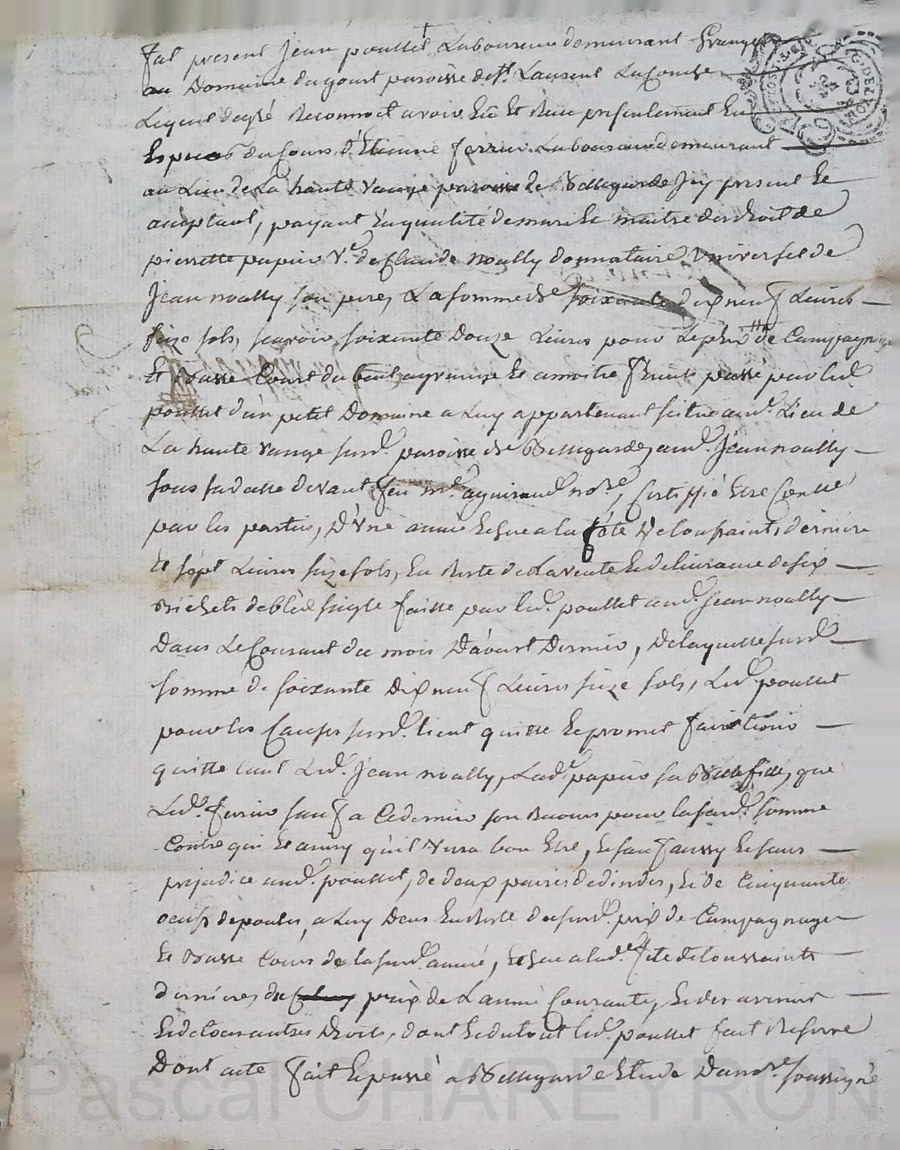 fut present Jean pouttet Laboureur demeurant
au Domaine du gourt paroisse de St. Laurent La Conche
Lequel de gré Reconnoit avoir Eu et Receu presentement En
Especes du Cours d'Etienne ferrier Laboureur demeurant
au Lieu de La haute vauge paroisse de Bellegarde Icy present Et
acceptant, payant En qualité de mari Et maitre des droits de
pierrette papier Ve. de Claude noally donnataire Universel de
Jean noally son pere, La somme de soixante dix neuf Livres
seize sols, scavoir soixante douze Livres pour Le prix de Campagnage
Et Basse Court du bail a grange Et a moitié fruits passé par Led.
pouttet d'un petit Domaine a Luy appartenant scitue aud. Lieu de
La haute vauge surd. paroisse de Bellegarde, aud. Jean noally
sous sa datte devant feu me. aguiraud nore., Certiffié Etre Controllé
par les parties, D'Une année Echue a la fête De toussaints derniere
Et sept Livres seize sols, En Reste de La vente Et delivrance de six
Bichets de bled seigle faitte par led. pouttet aud. Jean noally
Dans Le Courant du mois D'avout Dernier, De laquelle surd.
somme de soixante Dix neuf Livres seize sols, Led. pouttet
pour les Causes surd. tient quitte Et promet faire tenir
quitte tant Led. Jean noally, Lad. papier sa Belle fille, que
Led. ferrier sauf a Ce dernier son Recours pour la surd. somme
Contre qui Et ainsy qu'il Verra bon Etre, Et sauf aussy Et sans
prejudice aud. pouttet, de deux paires de dindes, Et de Cinquante
oeufs de poules, a Luy Deus En Reste du surd. prix de Campagnage
Et Basse Cour de la surd. année, Echue a lad. fête de toussaints
dernieres du prix de L'année Courante, Et des avenir
Et de tous autres Droits, dont Et du tout led. pouttet fait Reserve
Dont acte fait Et passé a Bellegarde Etude Du nore. soussigné
Pascal CHAREYRON